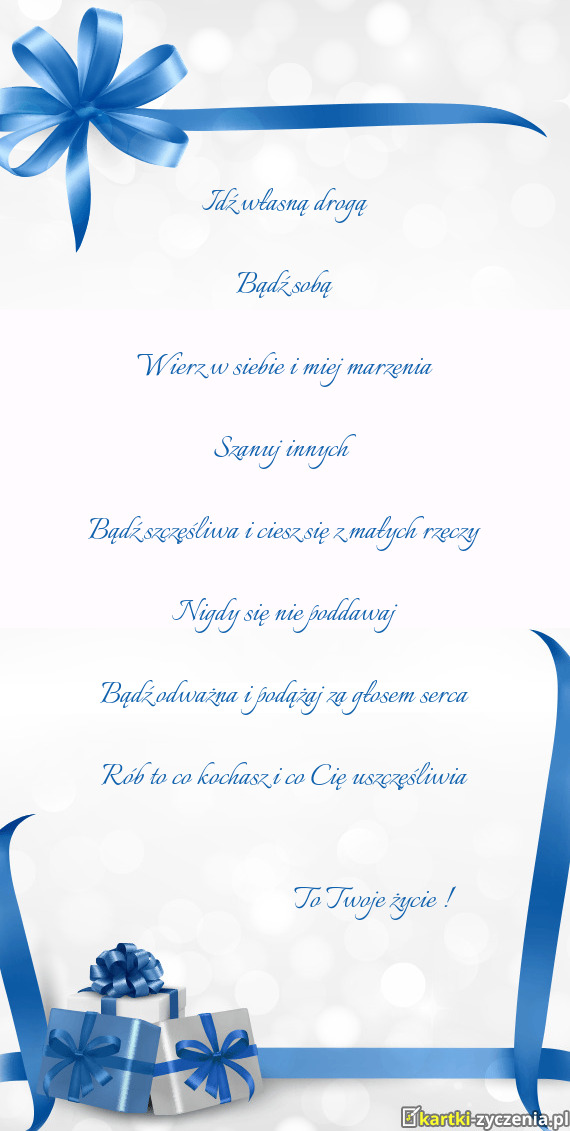 Idź własną drogą
Bądź sobą
Wierz w siebie i miej marzenia
Szanuj innych
Bądź szczęśliwa i ciesz się z małych rzeczy
Nigdy się nie poddawaj
Bądź odważna i podążaj za głosem serca
Rób to co kochasz i co Cię uszczęśliwia
To Twoje życie !
kartki-zyczenia.pl